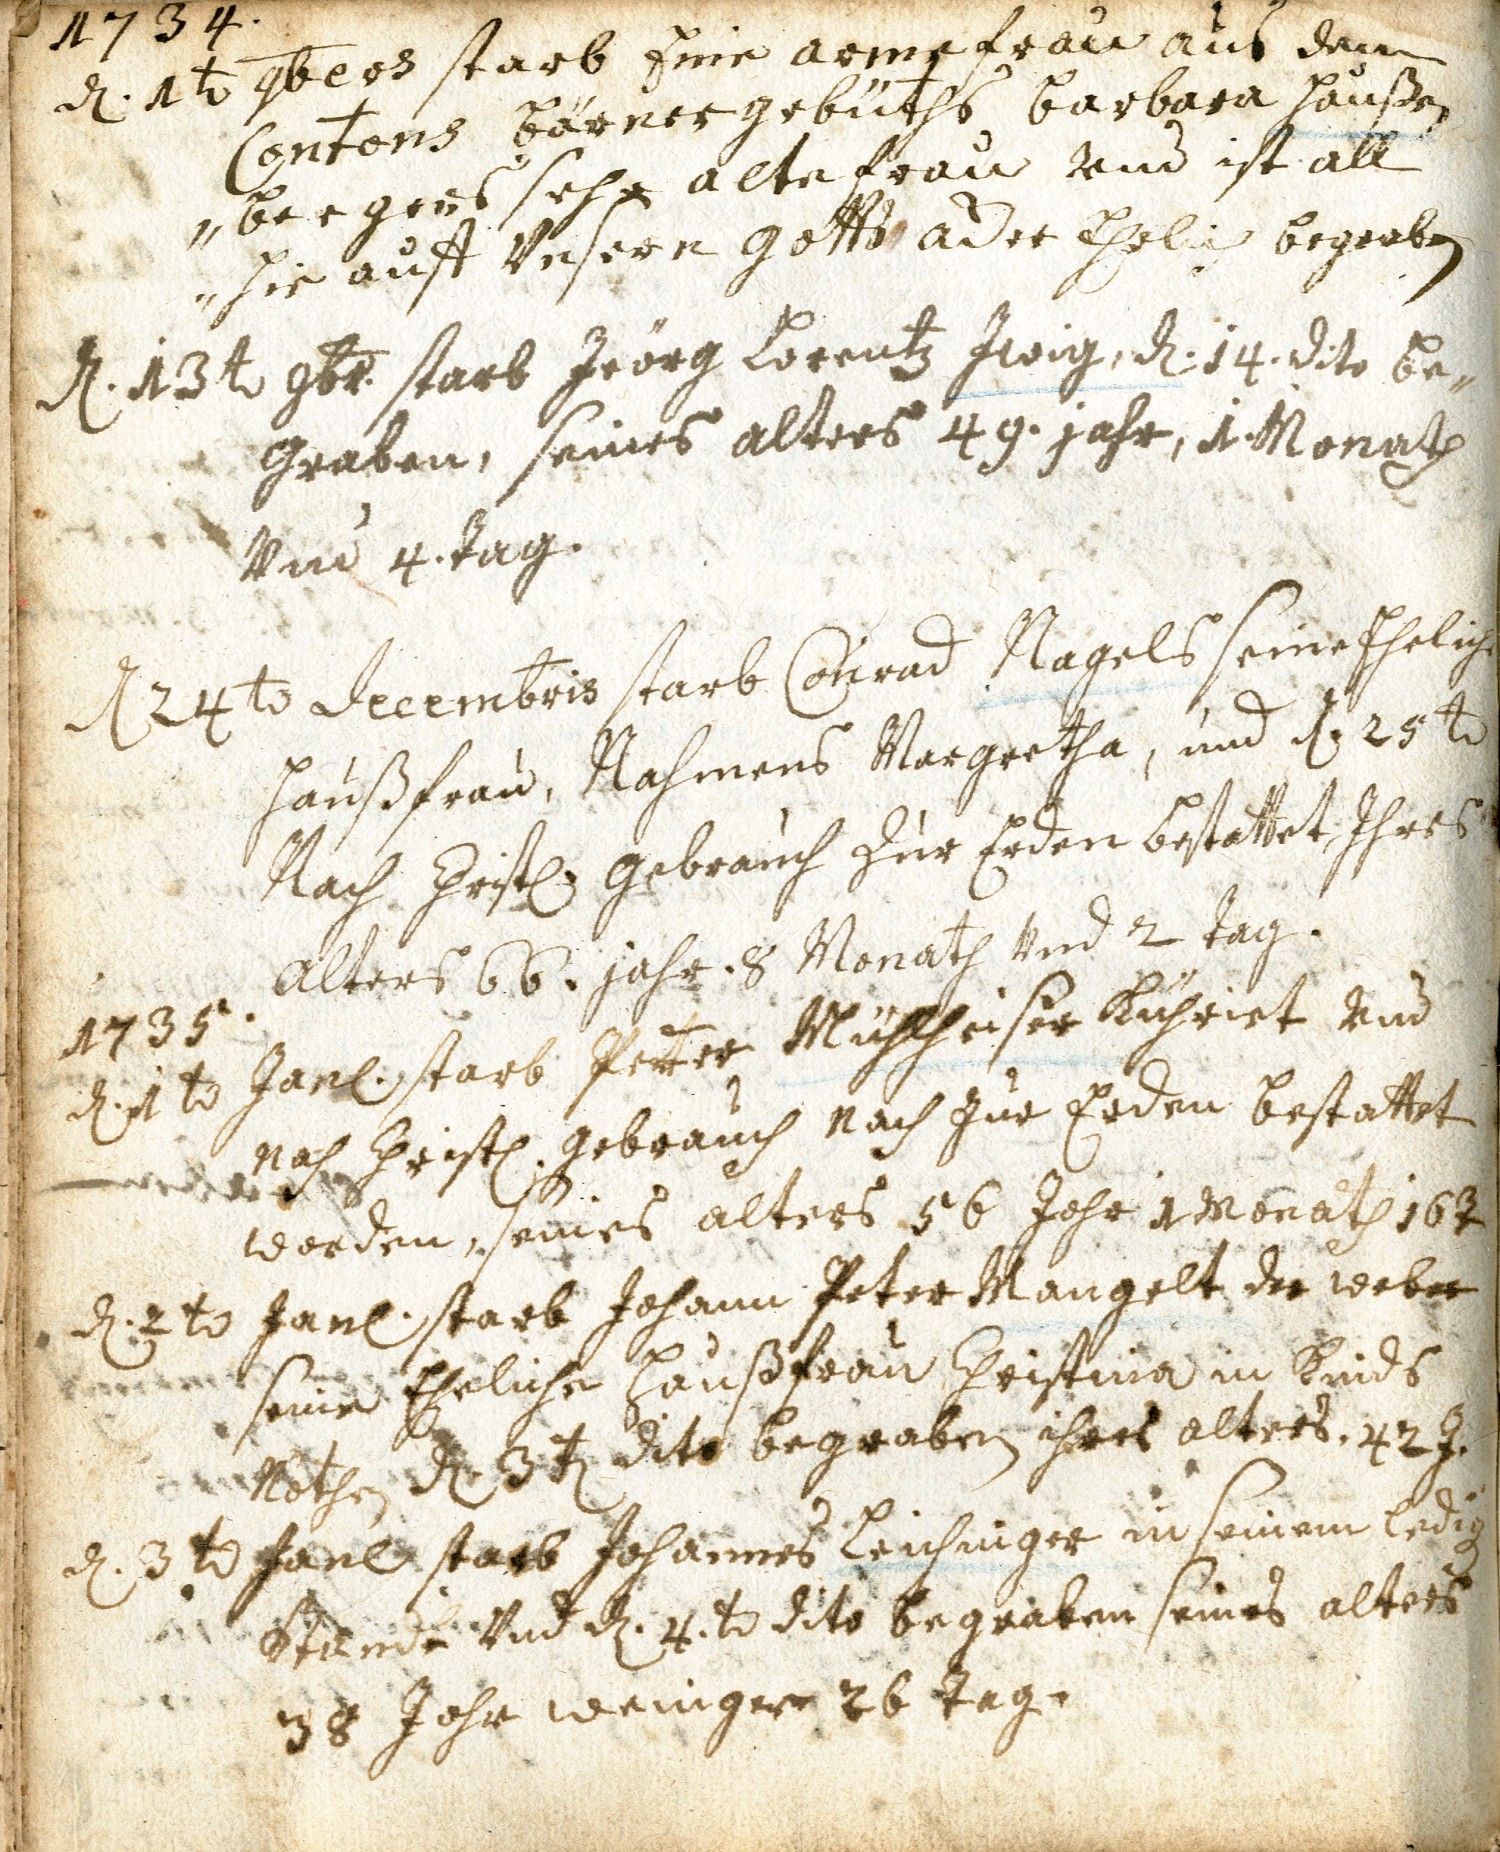 1734.
d. 1t 9bers starb Eine arme frau aus dem
Contons bärner gebüths barbara haußen
„bergers sehr alte frau und ist all
„hie auff unsern gotts ader Ehrlich begraben
d. 13t 9br. starb Jeörg Lorentz Zwig, d. 14. dito be„
graben, seines alters 49. jahr, 1. Monath
Und 4. tag.
d 24t Decembris starb Conrad Nagels seine Eheliche
haußfrau, Nahmens Margretha, und d. 25t
Nach Christl. gebrauch Zur Erden bestattet, Ihres
Alters 66. jahr. 8 Monath und 2 tag.
1735.
d. 1t Janl. starb Petter Mühlheiser Kühhirt und
nach Christl. gebrauch nach Zur Erden bestattet
worden, seines alters 56 Jahr 1 Monath 16
d. 2t Janl. starb Johann Peter Mangelt der weber
seine Eheliche haußfrau Christina in Kinds
Nothen d. 3t dito begraben ihres alters. 42 J.
d. 3t Janl. starb Johannes Leichinger in seinem ledig
Stande Und d. 4.t dito begraben seines alters
38 Jahr weniger 26 Tag.